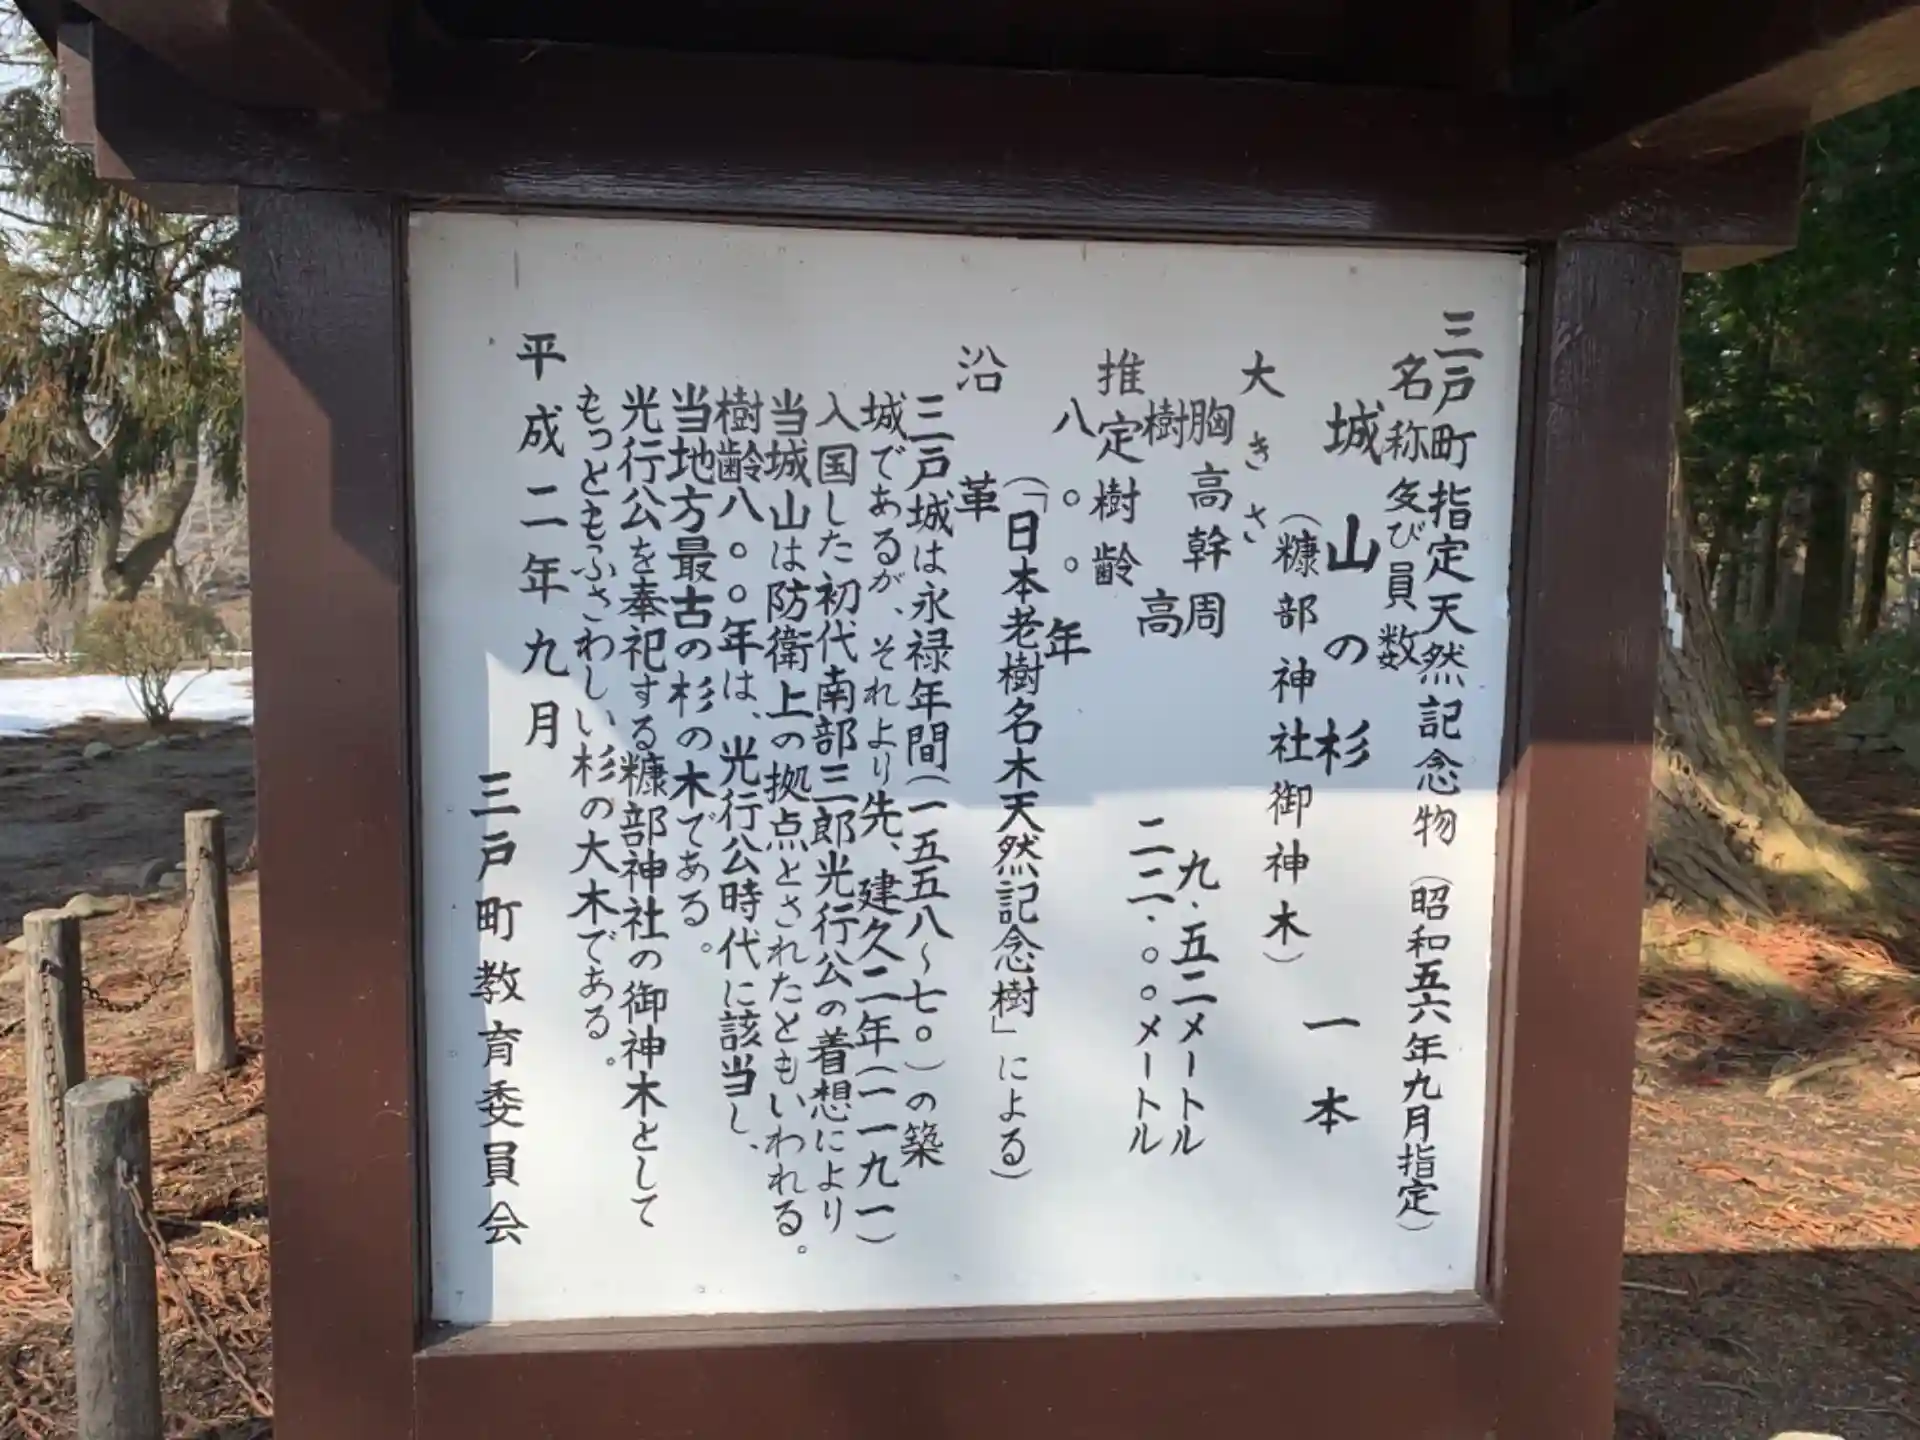 三戸町指定天然記念物（昭和五六年九月指定）
名称及び員数
城山の杉　一本
（糠部神社御神木）
大きさ
胸高幹周　九・五二メートル
樹高　二二・〇〇メートル
推定樹齢
八〇〇年
（「日本老樹名木天然記念樹」による）
沿革
三戸城は永禄年間（一五五八～七〇）の築
城であるが、それより先、建久二年（一一九一）
入国した初代南部三郎光行公の着想により
当城山は防衛上の拠点とされたともいわれる。
樹齢八〇〇年は、光行公時代に該当し、
当地方最古の杉の木である。
光行公を奉祀する糠部神社の御神木として
もっともふさわしい杉の大木である。
平成二年九月
三戸町教育委員会